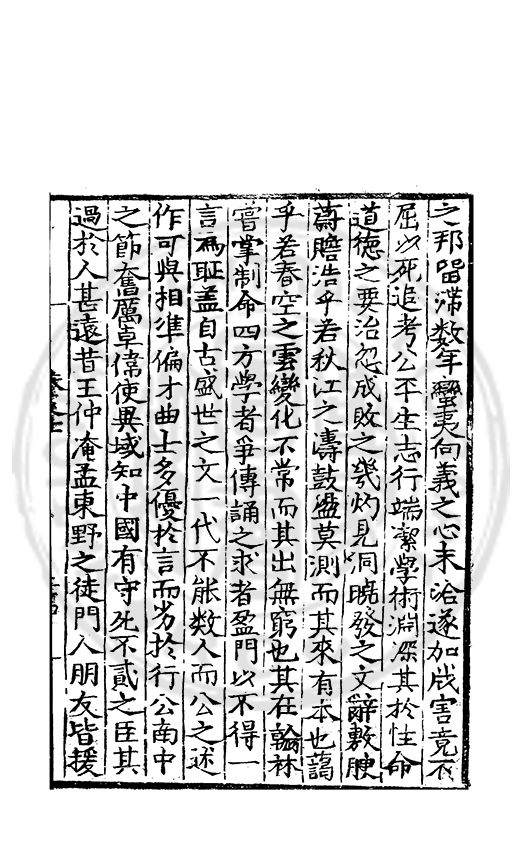 之邦畱滯數年蠻夷向義之心未洽遂加戕害竟不
屈以死追考公平生志行端潔學術淵深其於性命
道德之要治忽成敗之幾灼見洞曉發之文辭敷腴
蔚贍浩乎若秋江之濤鼓盪莫測而其來有本也藹
乎若春空之雲變化不常而其出無窮也其在翰林
嘗掌制命四方學者爭傳誦之求者盈門以不得一
言為耻盖自古盛世之文一代不能数人而公之述
作可與相準偏才曲士多優於言而劣於行公南中
之節奮厲卓偉使異域知中國有守死不貳之臣其
過於人甚遠昔王仲淹孟東野之徒門人朋友皆援